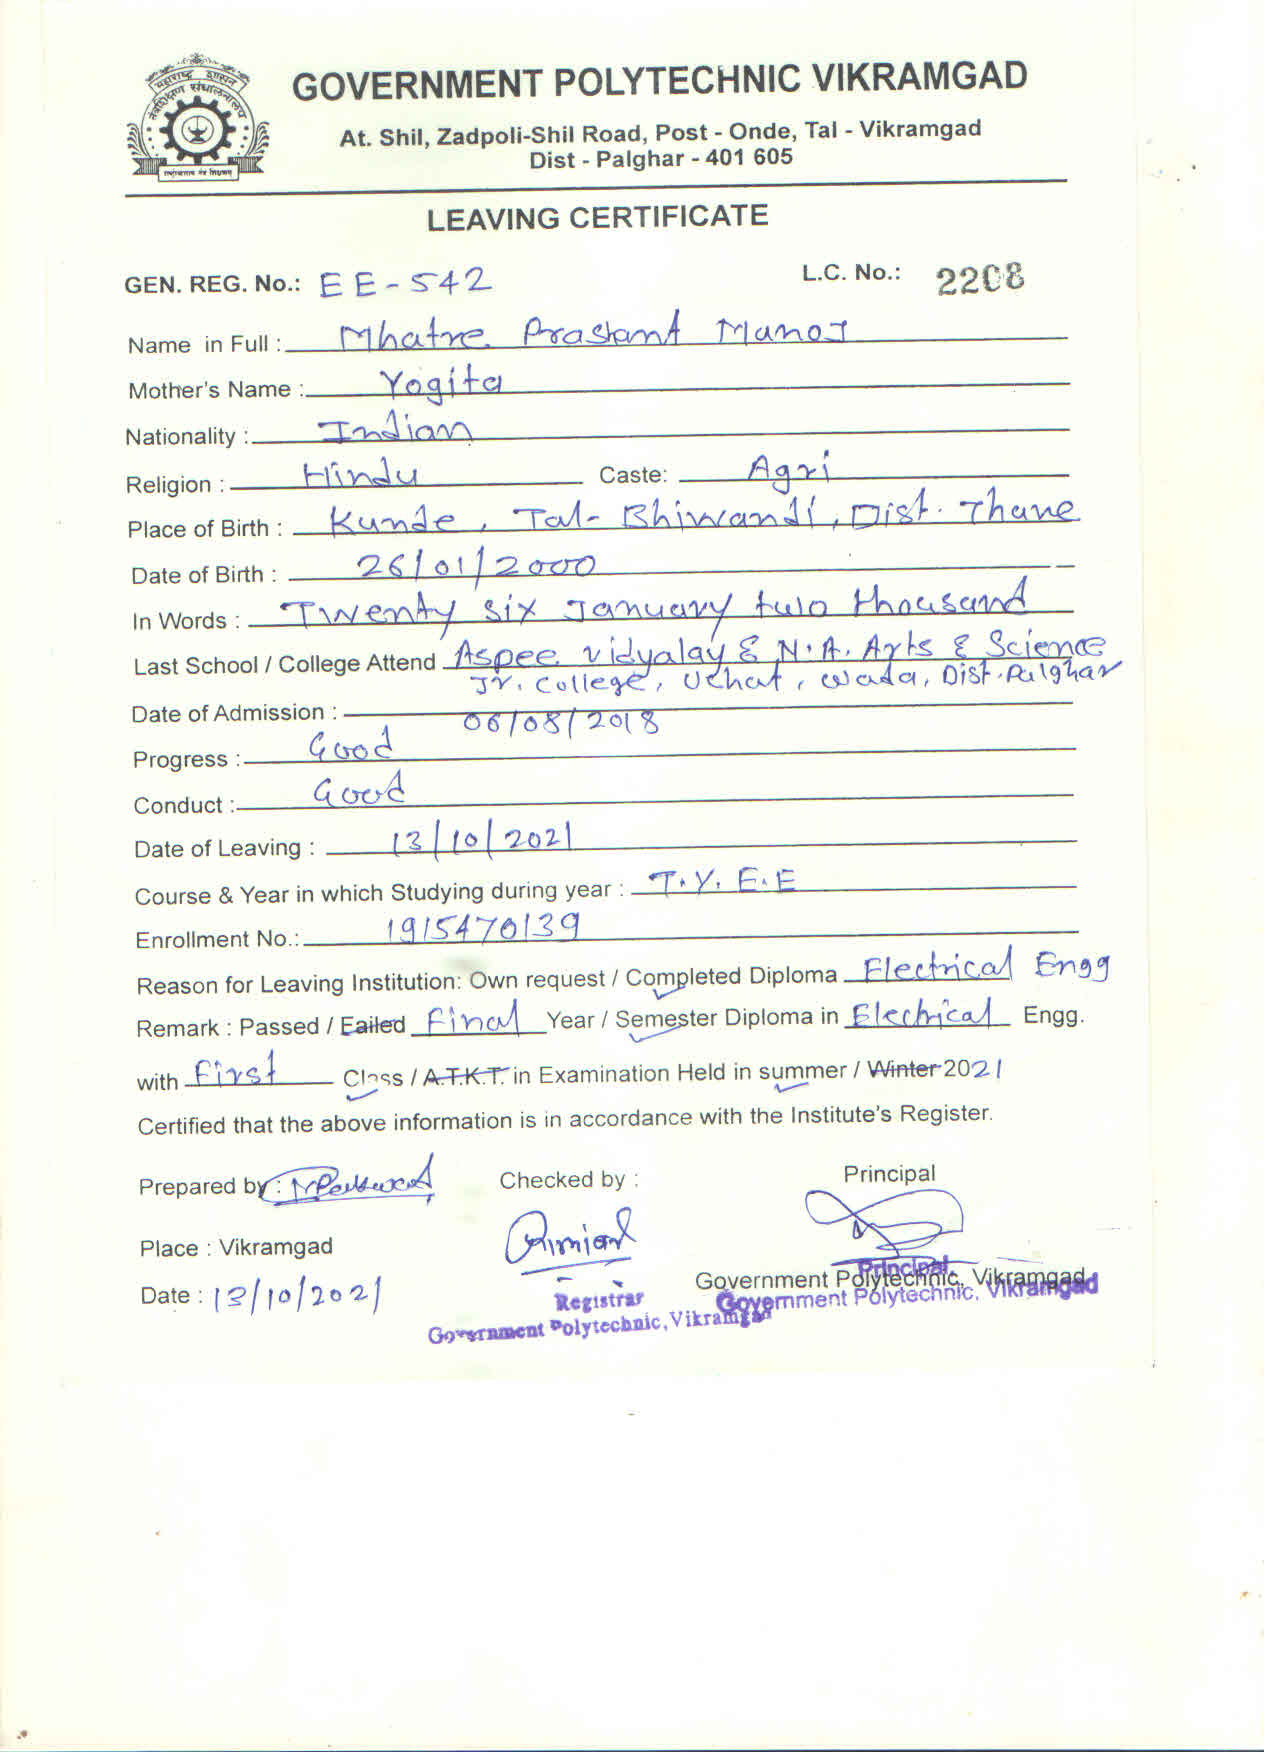 महाराष्ट्र शासन
GOVERNMENT POLYTECHNIC VIKRAMGAD
At. Shil, Zadpoli-Shil Road, Post - Onde, Tal - Vikramgad
Dist - Palghar - 401 605
LEAVING CERTIFICATE
GEN. REG. No.: EE-542 L.C. No.: 2208
Name in Full : Mhatre Prashant Manoj
Mother's Name : Yogita
Nationality : Indian
Religion : Hindu Caste: Agri
Place of Birth : Kunde, Tal- Bhiwandi, Dist. Thane
Date of Birth : 26/01/2000
In Words : Twenty six January two thousand
Last School / College Attend Aspee vidyalay & N.A. Arts & Science
Jr. College, Uchat, Wada, Dist. Palghar
Date of Admission : 06/08/2018
Progress : Good
Conduct : Good
Date of Leaving : 13/10/2021
Course & Year in which Studying during year : T.Y. E.E
Enrollment No.: 1915470139
Reason for Leaving Institution: Own request / Completed Diploma Electrical Engg
Remark : Passed / Failed Final Year / Semester Diploma in Electrical Engg.
with First Class / A.T.K.T. in Examination Held in summer / Winter 2021
Certified that the above information is in accordance with the Institute's Register.
Prepared by : Checked by : Principal
Place : Vikramgad
Date : 13/10/2021
Government Polytechnic, Vikramgad
Principal
Government Polytechnic, Vikramgad
Registrar
Government Polytechnic, Vikramgad